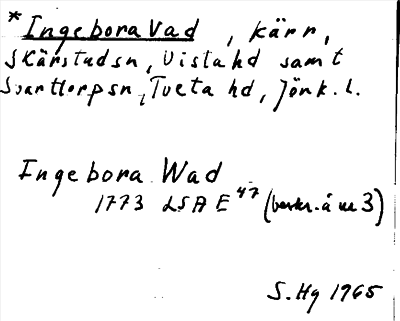 *Ingebora Vad, kärr,
Skärstadsn, Vista hd samt
Svarttorpsn, Tveta hd, Jönk. l.
Ingebora Wad
1773 LSA E 47 (beskr. å nr 3)
S. Hg 1965